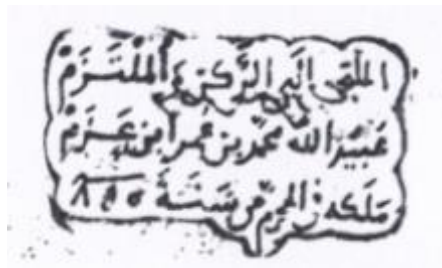 الملتجى الى الركن و المُلْتَزَمْ
عُبَيْد الله محمد بن عُمر ابن عَزَمْ
مَلَكه في المحرم من سَنَة ٨٥٥